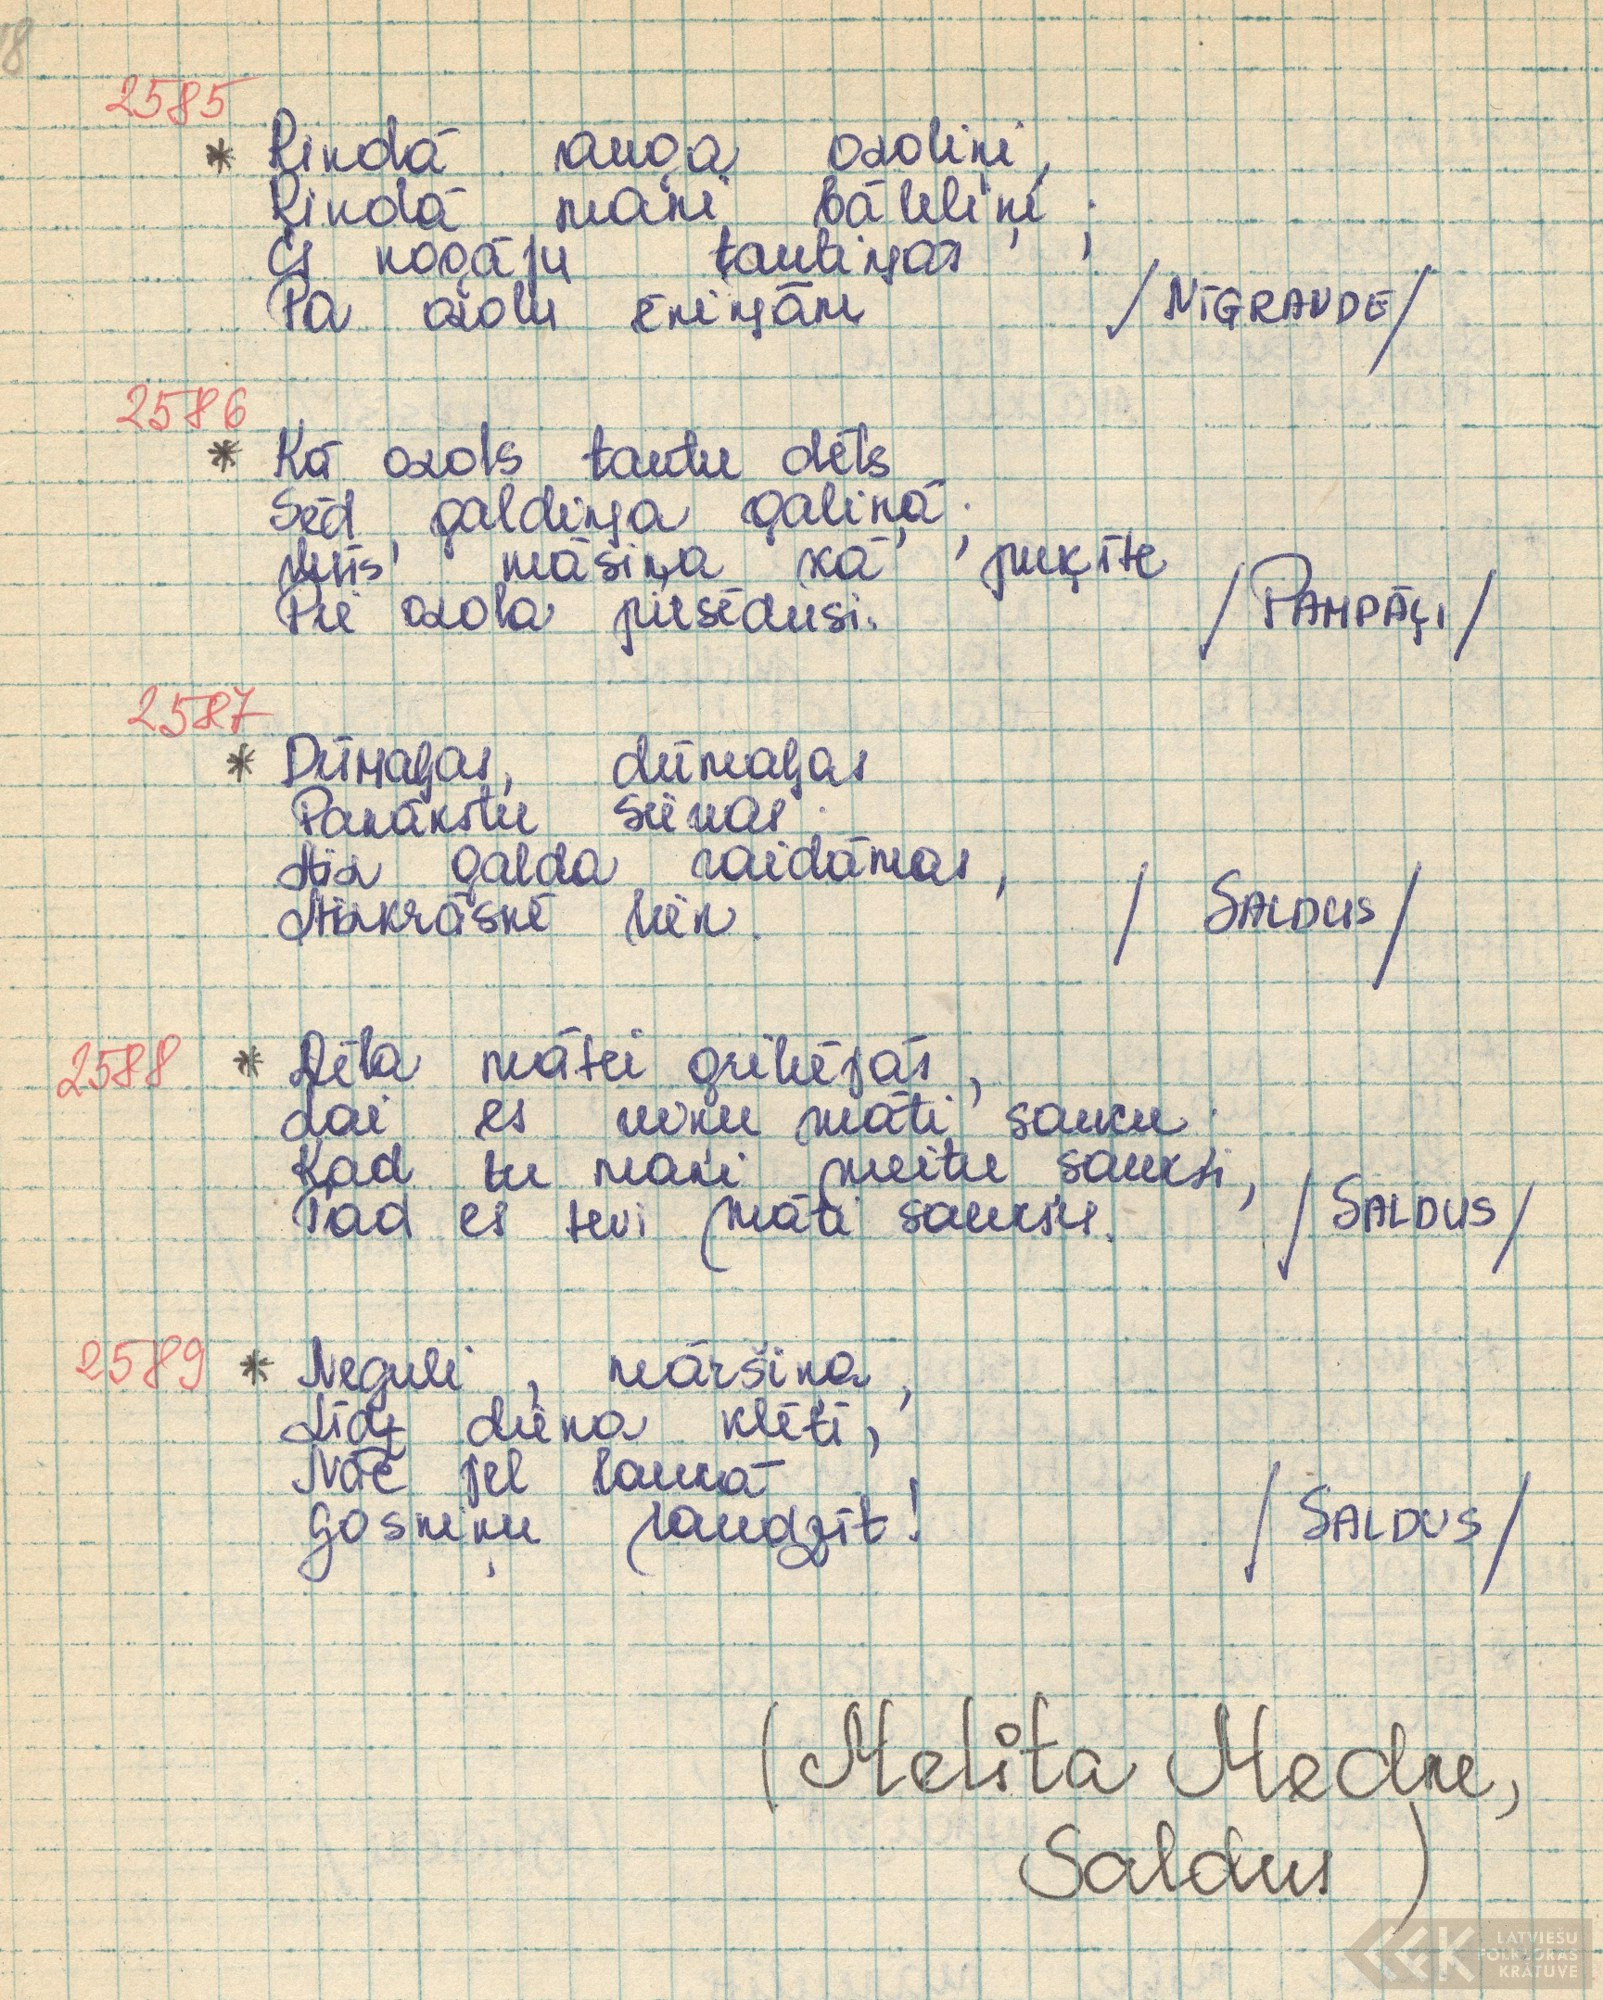 2585
* Rindā auga ozoliņi,
Rindā mani bāleliņi;
Es nogāju tautiņās
Pa ozolu ēniņām /NĪGRANDE/
2586
* Kā ozols tautu dēls
Sēd galdiņa galiņā;
Mūs' māsiņa kā puķīte
Pie ozola piesēdusi. /PAMPĀĻI/
2587
* Dūmaļas, dūmaļas
Panākstu sievas:
Aiz galda raidāmas,
Aizkrāsnē lien. / SALDUS/
2588 * Dēla mātei gribējās,
Lai es viņu māti saucu;
Kad tu mani meitu sauksi,
Tad es tevi māti saukšu. /SALDUS/
2589 * Neguli, māršiņa,
Līdz diena klētī,
Nāc jel laukā
Gosniņu raudzīt! /SALDUS/
(Melita Medne,
Saldus)
LATVIEŠU
FOLKLORAS
KRĀTUVE